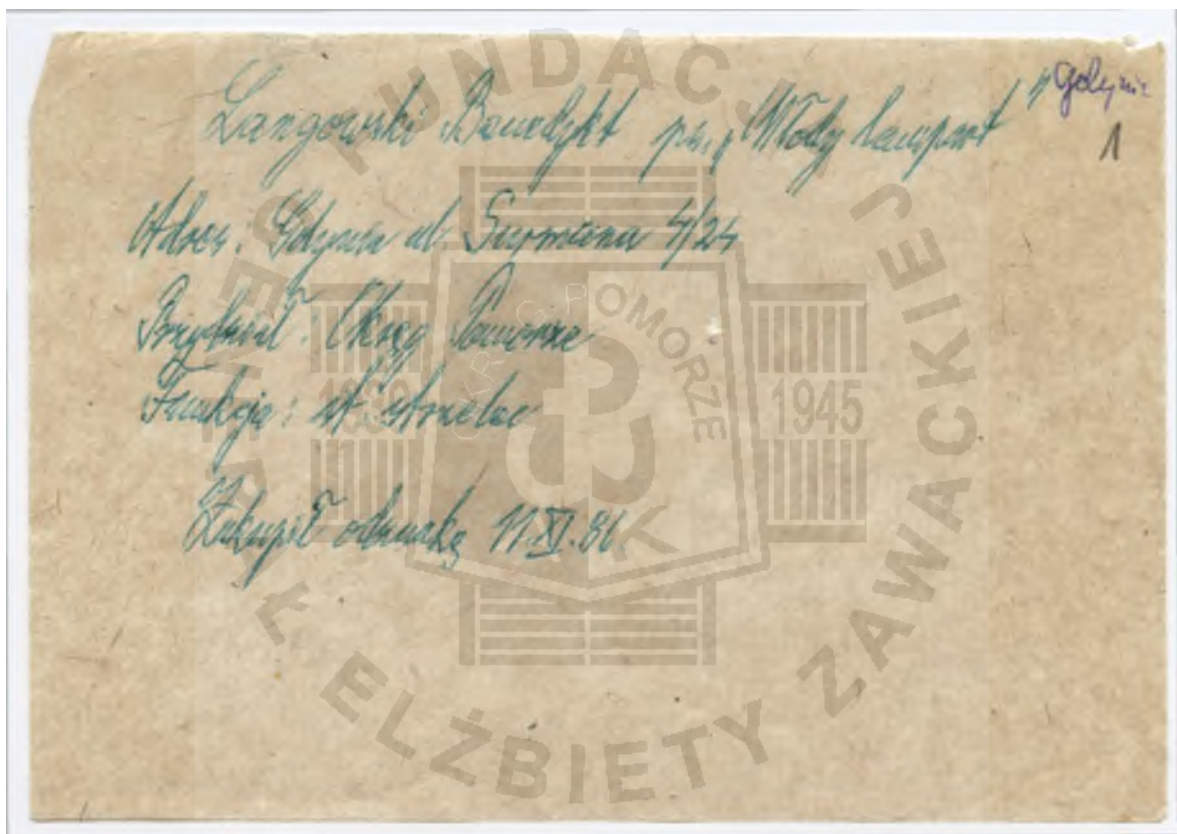 Gdynia
Langowski Benedykt ps. „Młody lampart"
1
Adres. Gdynia ul. 4/24
Przydział: Okręg Pomorze
Funkcja: st strzelec
Zakupił odznakę 11.XI.86
FUNDACJA GENERAŁ ELŻBIETY ZAWACKIEJ
OKRĘG POMORZE
1939
1945
AK